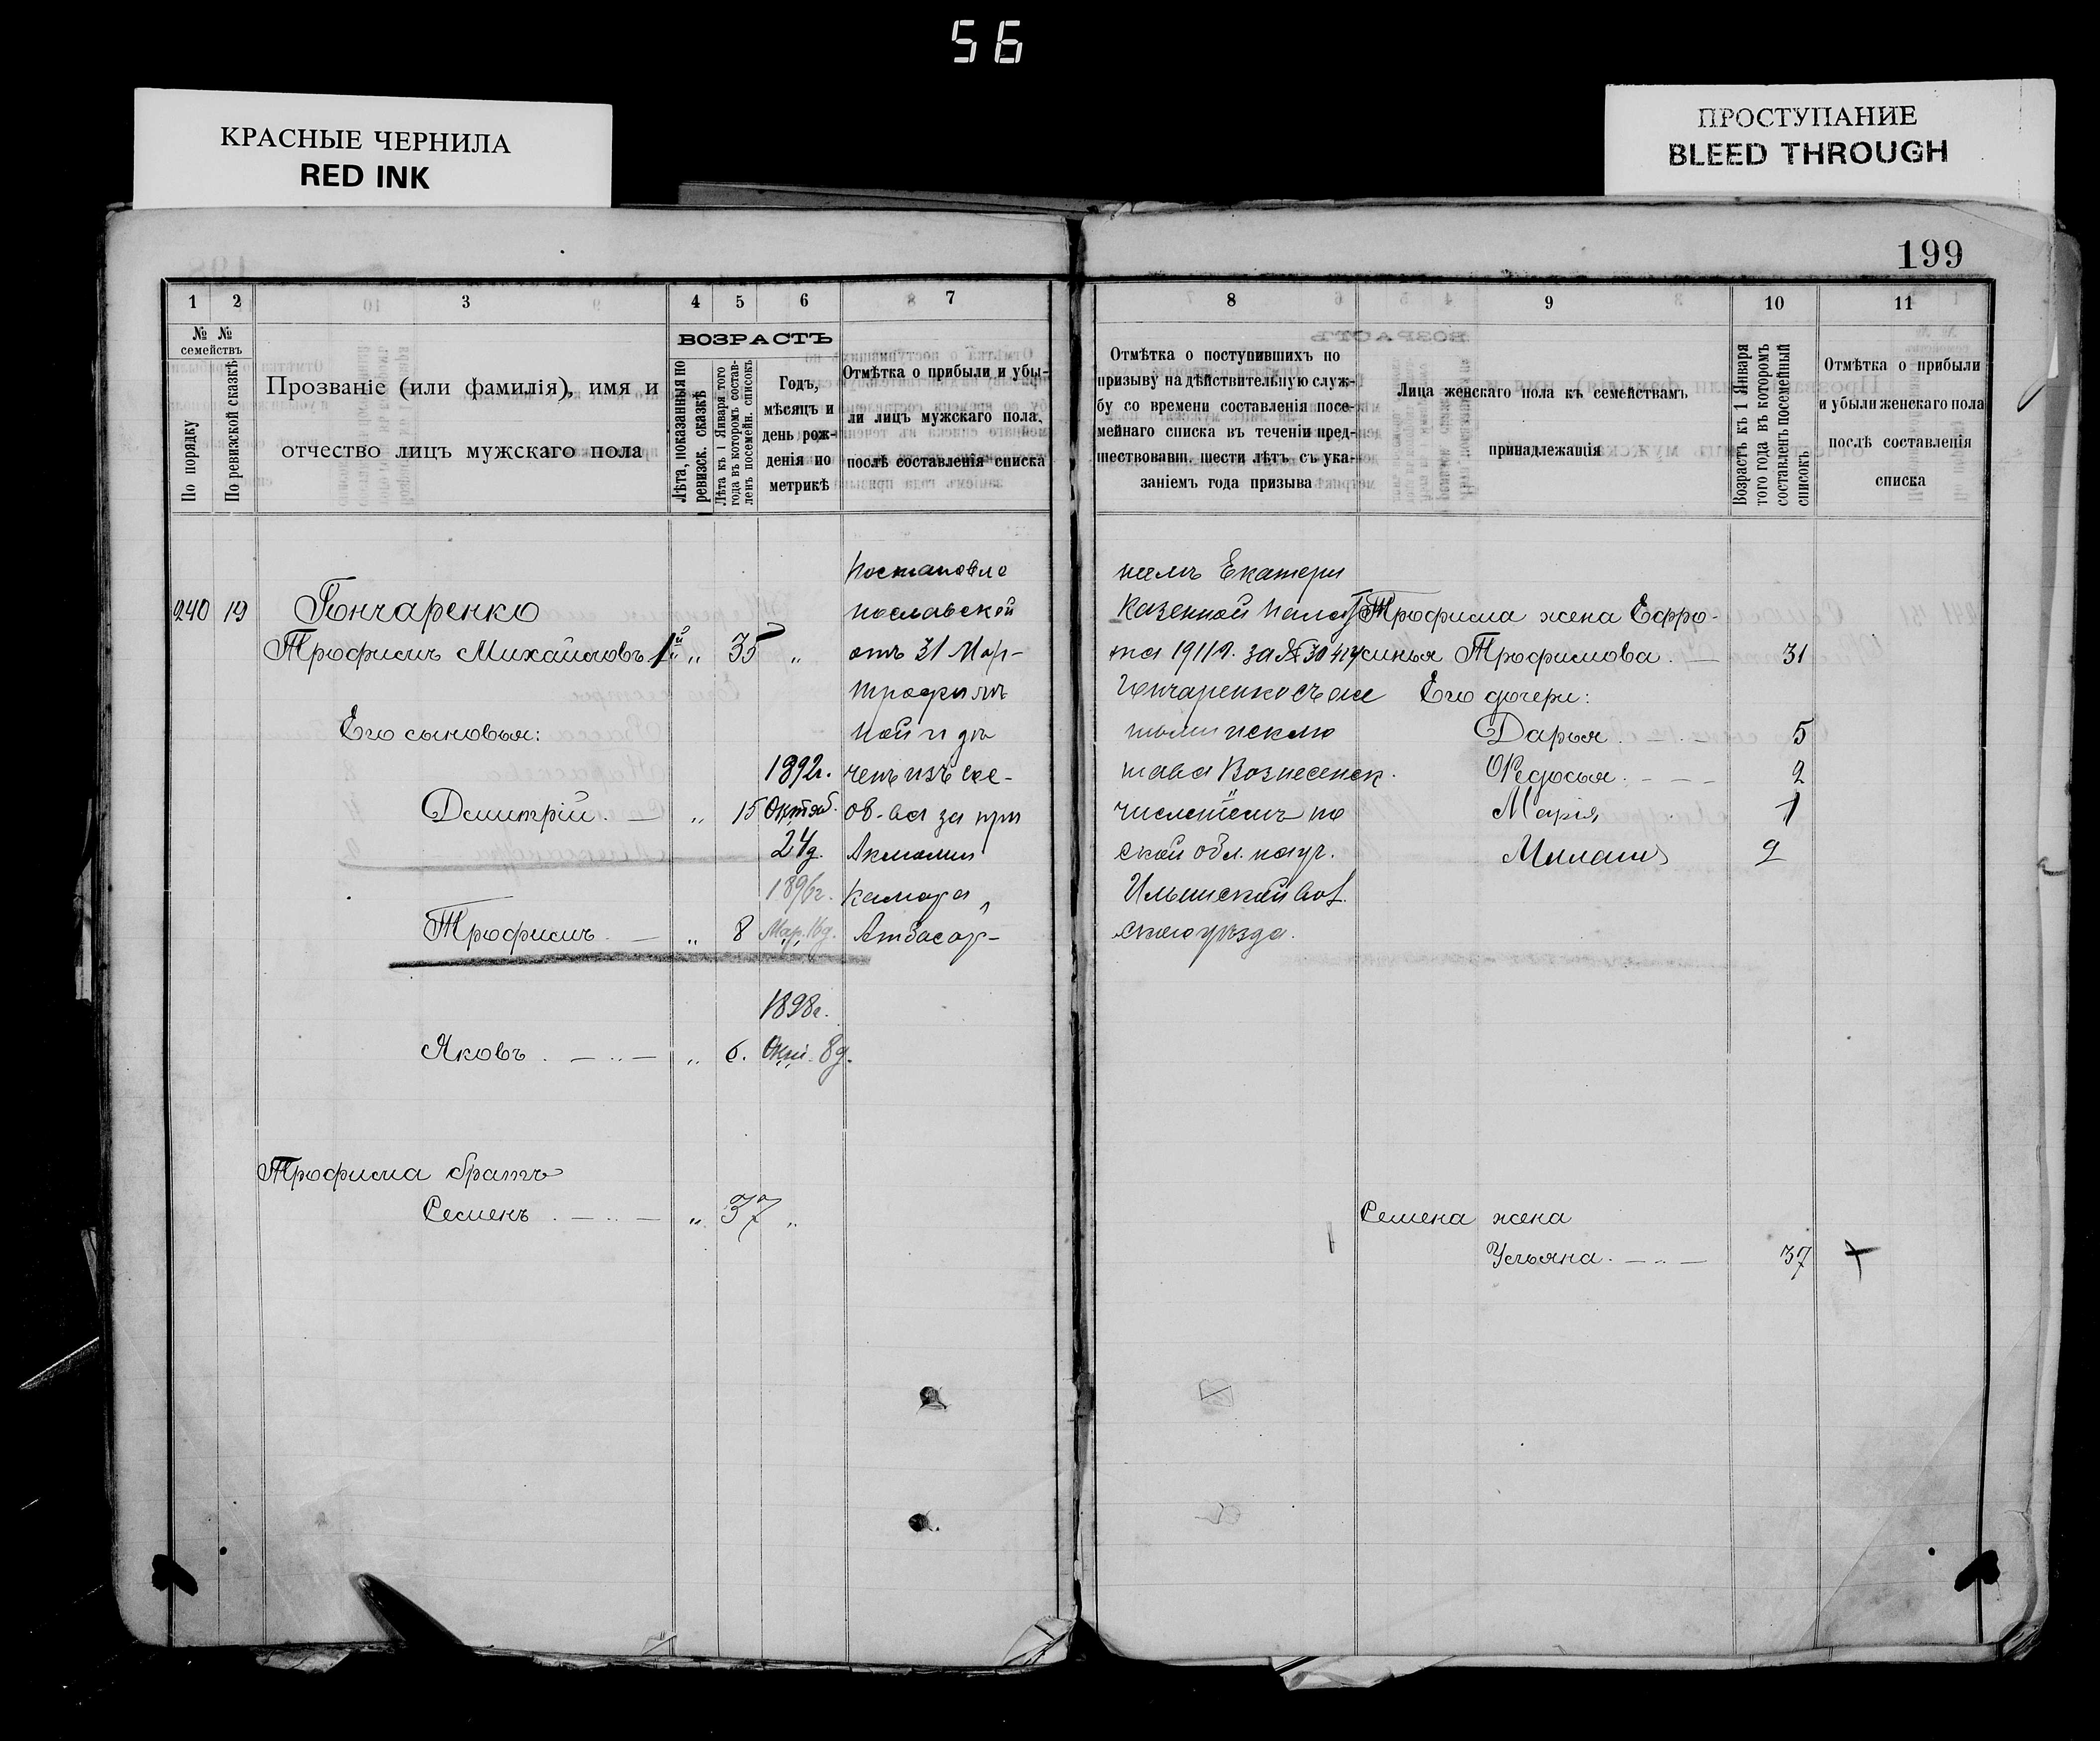 56
КРАСНЫЕ ЧЕРНИЛА
RED INK
ПРОСТУПАНИЕ
BLEED THROUGH
199
1 2 3 4 5 6 7
№ № семействъ
По порядку
По ревизской сказкѣ
Прозваніе (или фамилія), имя и
отчество лицъ мужскаго пола
ВОЗРАСТЪ
Лѣта, показанныя по
ревизск. сказкѣ
Лѣта къ 1 Января того
года въ которомъ состав-
ленъ посемейн. списокъ
Годъ,
мѣсяцъ и
день рож-
денія по
метрикѣ
Отмѣтка о прибыли и убы-
ли лицъ мужскаго пола,
послѣ составленія списка
8 9 10 11
Отмѣтка о поступившихъ по
призыву на дѣйствительную служ-
бу со времени составленія посе-
мейнаго списка въ теченіи пред-
шествовавш. шести лѣтъ съ ука-
заніемъ года призыва
Лица женскаго пола къ семействамъ
принадлежащія
Возрастъ къ 1 Января
того года въ которомъ
составленъ посемейный
списокъ
Отмѣтка о прибыли
и убыли женскаго пола
послѣ составленія
списка
Постановле
ніемъ Екатери
240 19 Гончаренко
нославской
Казенной Палаты
Трофима жена Ефро-
Трофимъ Михайловъ 1й „ 35 „
отъ 31 Мар-
та 1911г. за № 30417
синья Трофимова. — 31
Трофимъ
Гончаренко съ же
Его дочери:
Его сыновья:
ной и дѣ
тьми исклю
Дарья. — 5
1892г.
ченъ изъ со-
става Вознесенск.
Ѳедосья. — 2
Дмитрій. — „ 15 Октяб.
об-ва за при
численіемъ по
Марія 1
24д.
Акмолин
ской обл.
2
1896г.
Ильинской вол.
Трофимъ. — „ 8 Мар. 16д.
Атбасар-
скаго уѣзда.
1898г.
Яковъ . — .. — „ 6. Окт. 8д.
Трофима братъ
Семенъ . — .. — „ 37 „
Семена жена
Ульяна. — .. — 37 +